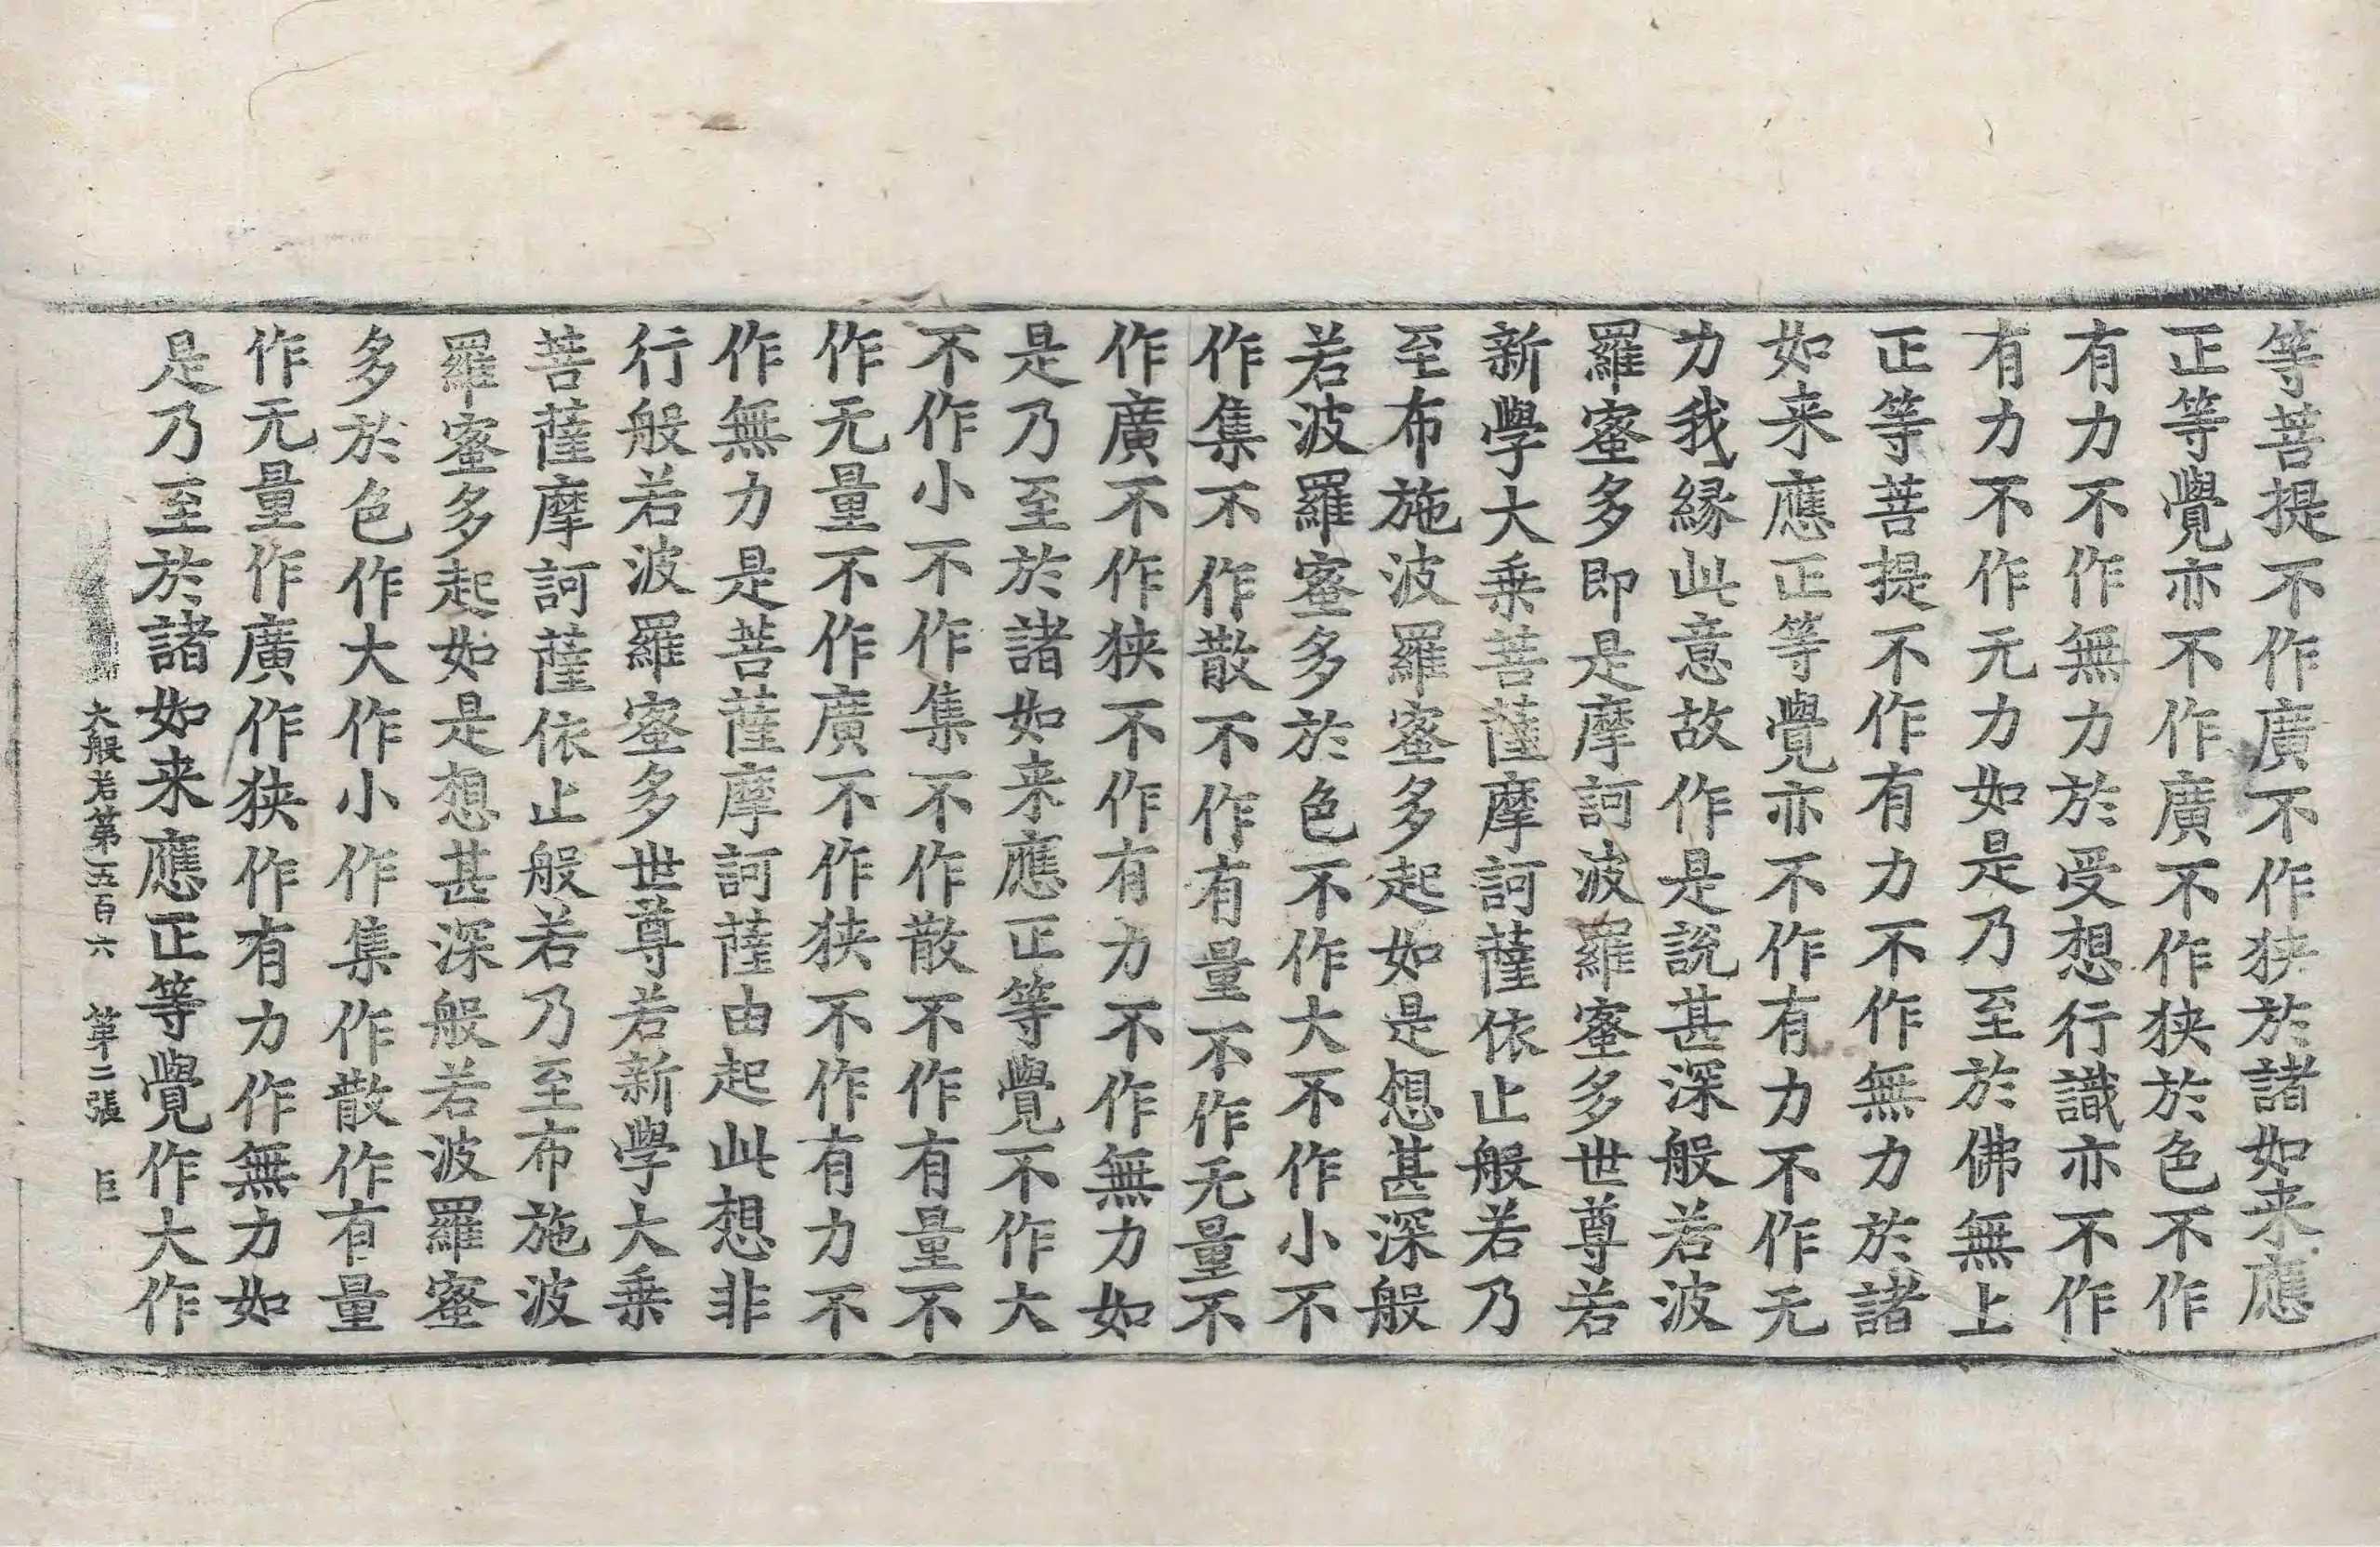 等菩提不作廣不作狹於諸如来應
正等覺亦不作廣不作狹於色不作
有力不作無力於受想行識亦不作
有力不作无力如是乃至於佛無上
正等菩提不作有力不作無力於諸
如来應正等覺亦不作有力不作无
力我緣此意故作是說甚深般若波
羅蜜多即是摩訶波羅蜜多世尊若
新學大乗菩薩摩訶薩依止般若乃
至布施波羅蜜多起如是想甚深般
若波羅蜜多於色不作大不作小不
作集不作散不作有量不作无量不
作廣不作狹不作有力不作無力如
是乃至於諸如来應正等覺不作大
不作小不作集不作散不作有量不
作无量不作廣不作狹不作有力不
作無力是菩薩摩訶薩由起此想非
行般若波羅蜜多世尊若新學大乗
菩薩摩訶薩依止般若乃至布施波
羅蜜多起如是想甚深般若波羅蜜
多於色作大作小作集作散作有量
作无量作廣作狹作有力作無力如
是乃至於諸如来應正等覺作大作
大般若第五百六 第二張 巨